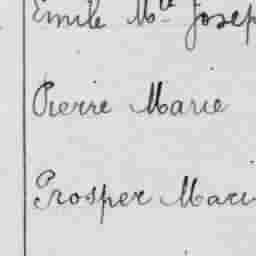 Emile Mie Josep
Pierre Marie
Prosper Mari